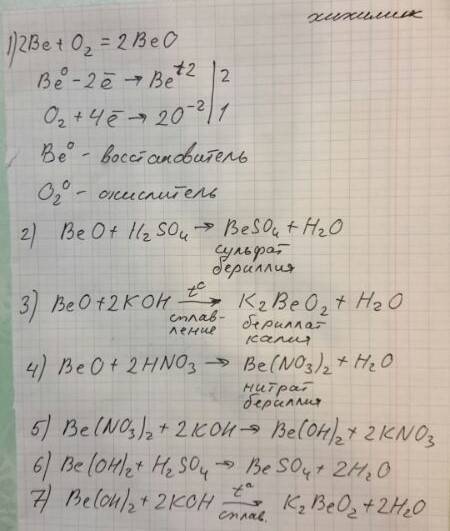 хихимик
1) 2Be + O₂ = 2BeO
Be⁰ - 2ē → Be⁺² | 2
O₂ + 4ē → 2O⁻² | 1
Be⁰ - восстановитель
O₂⁰ - окислитель
2) BeO + H₂SO₄ → BeSO₄ + H₂O
сульфат
бериллия
3) BeO + 2KOH t° → K₂BeO₂ + H₂O
сплав- бериллат
ление калия
4) BeO + 2HNO₃ → Be(NO₃)₂ + H₂O
нитрат
бериллия
5) Be(NO₃)₂ + 2KOH → Be(OH)₂ + 2KNO₃
6) Be(OH)₂ + H₂SO₄ → BeSO₄ + 2H₂O
7) Be(OH)₂ + 2KOH t° → K₂BeO₂ + 2H₂O
сплав.